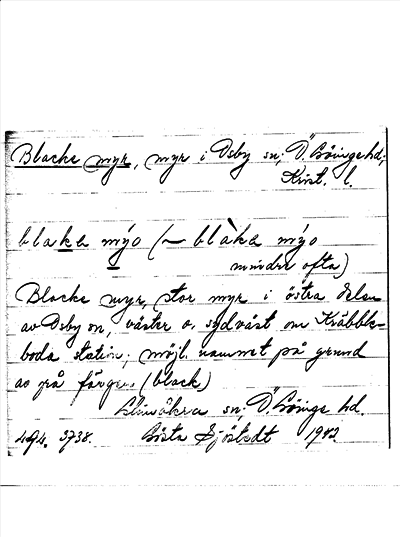 Blacke myr, myr i Osby sn; Ö. Göinge hd;
Krist. l.
blaka mýo (~ blàka mýo
mindre ofta)
Blacke myr, stor myr i östra delen
av Osby sn, väster o. sydväst om Kräbble-
boda station; möjl. namnet på grund
av på färgen (black)
sn; Ö. Göinge hd.
494. 3738. Gösta Sjöstedt 1942